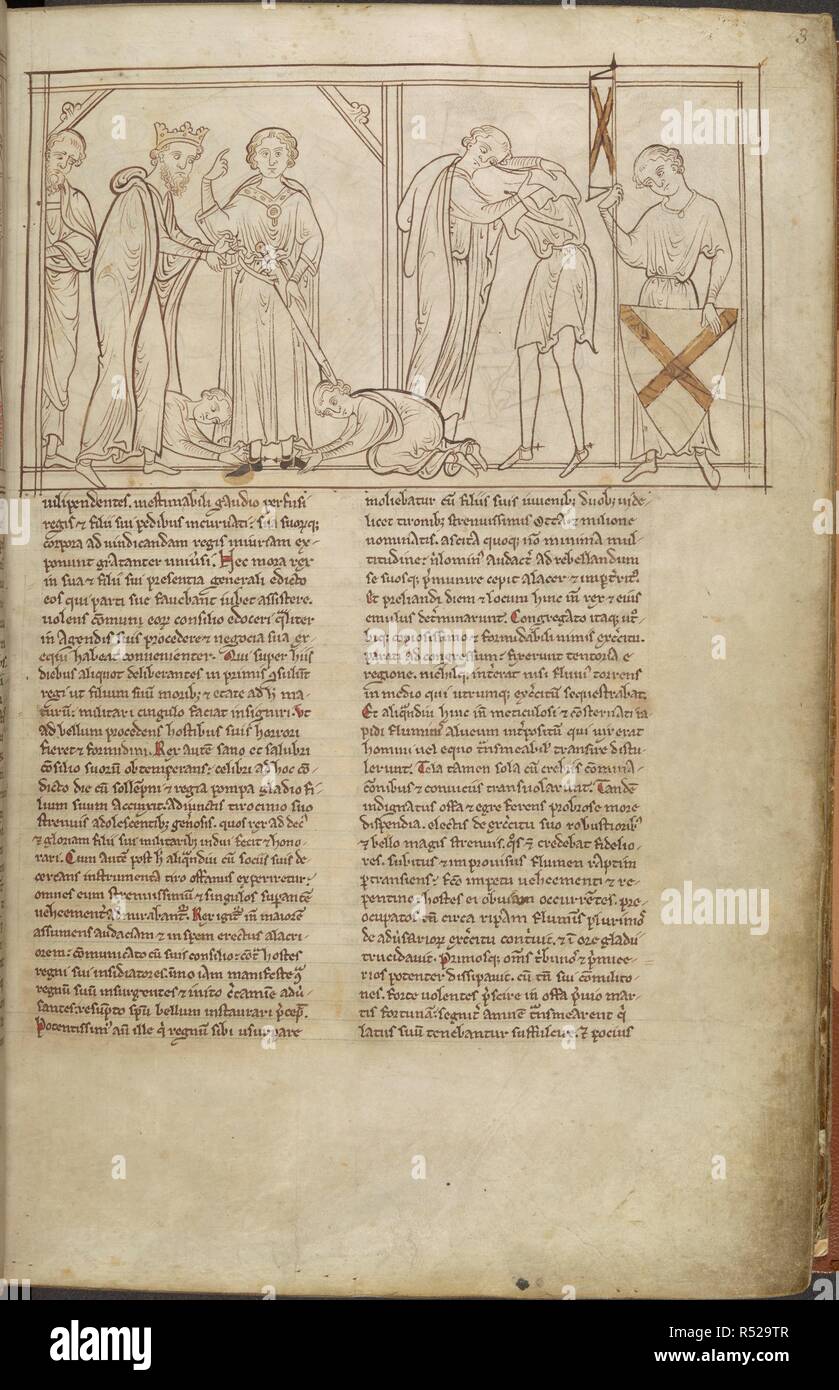 3
uilipendentes. inestimabili gaudio perfusi
regis ⁊ filii sui pedibus incuruati: sua suorūq;
corpora ad uindicandam regis iniuriam ex-
ponunt gratanter uniuersi. Nec mora rex
in sua ⁊ filii sui presentia generali edicto
eos qui parti sue fauebant iubet assistere.
uolens cōmuni eorū consilio edoceri qualiter
in agendis suis procedere ⁊ negocia sua ex-
equi habeat conuenienter. Qui super hiis
diebus aliquot deliberantes in primis
regi ut filium suū moribꝫ ⁊ etate ad h ma-
turū: militari cingulo faciat insigniri. ut
ad bellum procedens hostibus suis horrori
fieret ⁊ formidini. Rex autē sano et salubri
cōsilio suorū obtemperans: celebri ad hoc cō-
dicto die cū sollēpni ⁊ regia pompa gladio fi-
lium suum accinxit. Adiunctis tirocinio suo
strenuis adolescentibꝫ generosis. quos rex ad dec
⁊ gloriam filii sui militaribꝫ indui fecit ⁊ hono-
rari. Cum autē post h aliqndiu cū sociis suis de-
certans instrumenta tiro offanus experiretur:
omnes eum strenuissimū ⁊ singulos superantē
uehement admirabant. Rex igit in maiorē
assumens audaciam ⁊ in spem erectus alacri-
orem: communicato cū suis consilio: contra hostes
regni sui insidiatores. immo iam manifeste
regnū suū insurgentes ⁊ inito certamine adu-
santes: resupto spu bellum instaurari precep.
Potentissim aū ille q̄ regnū sibi usurpare
moliebatur cū filiis suis iuuenibꝫ duobꝫ uide-
licet tironibꝫ strenuissimis otta ⁊ milione
nominatis. ascita quoq; nō minima mul-
titudine: audact ad rebellandum
se suosq; premunire cepit alacer ⁊
Et preliandi diem ⁊ locum hinc in rex ⁊ eius
emulus determinarunt. Congregato itaq; utr-
biq; copiosissimo ⁊ formidabili nimis exercitu.
parati ad congressum: fixerunt tentoria e
regione. nichilq; int̄erat nisi fluuius torrens
in medio qui utrumq; exercitum sequestrabat.
Et aliqndiu hinc in meticulosi ⁊ consternati ra-
pidi fluminis alueum int̄positū qui uix erat
homini uel equo transmeabilis transire distu-
lerunt. Tela tamen sola cū crebris comina-
cionibus ⁊ conuiciis transuolarunt. Tandē
indignatus offa ⁊ egre ferens probrose more
dispendia. electis de exercitu suo robustioribꝫ
⁊ bello magis strenuis. quos ⁊ credebat fidelio-
res. subitus ⁊ improuisus flumen raptim
pertransiens: facto impetu uehementi ⁊ re-
pentino: hostes ei obuiam occurrentes. pre-
ocupatos circa ripam fluminis plurimos
de aduersariorū exercitu contriuit. ⁊ ī ore gladii
trucidauit. Primosq; oms tribunos ⁊ primice-
rios potenter dissipauit. cū tn sui comilito-
nes. forte uolentes prescire in offa preuio mar-
tis fortunam: segnit amnem transmearent q̄
latus suū tenebantur suffulcire. ⁊ pocius
alamy
Image ID: R529TR
www.alamy.com